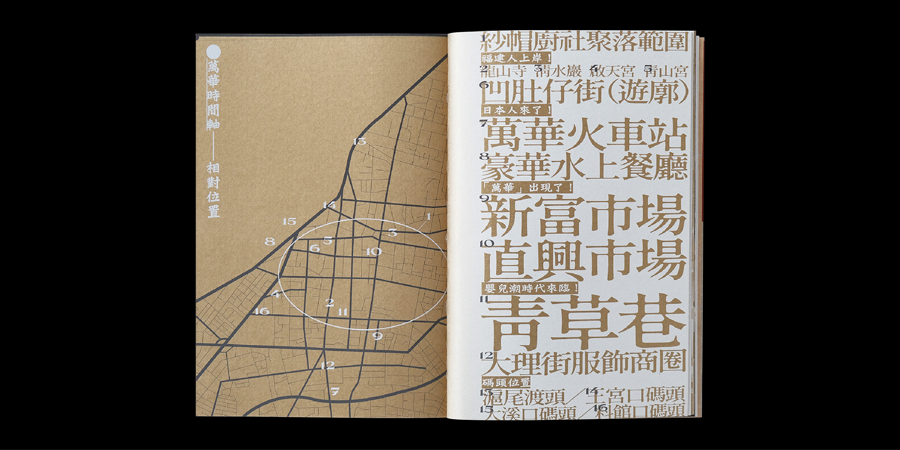 萬華時間軸——相對位置
13
14
15
1
3
8
5
6
10
4
2
16
11
9
12
7
1
紗帽廚社聚落範圍
福建人上岸！
2 3 4 5
龍山寺 清水巖 啟天宮 青山宮
6
凹肚仔街（遊廓）
日本人來了！
7
萬華火車站
8
豪華水上餐廳
「萬華」出現了！
9
新富市場
10
直興市場
嬰兒潮時代來臨！
11
青草巷
12
大理街服飾商圈
碼頭位置
13 14
滬尾渡頭／王宮口碼頭
15 16
大溪口碼頭／料館口碼頭